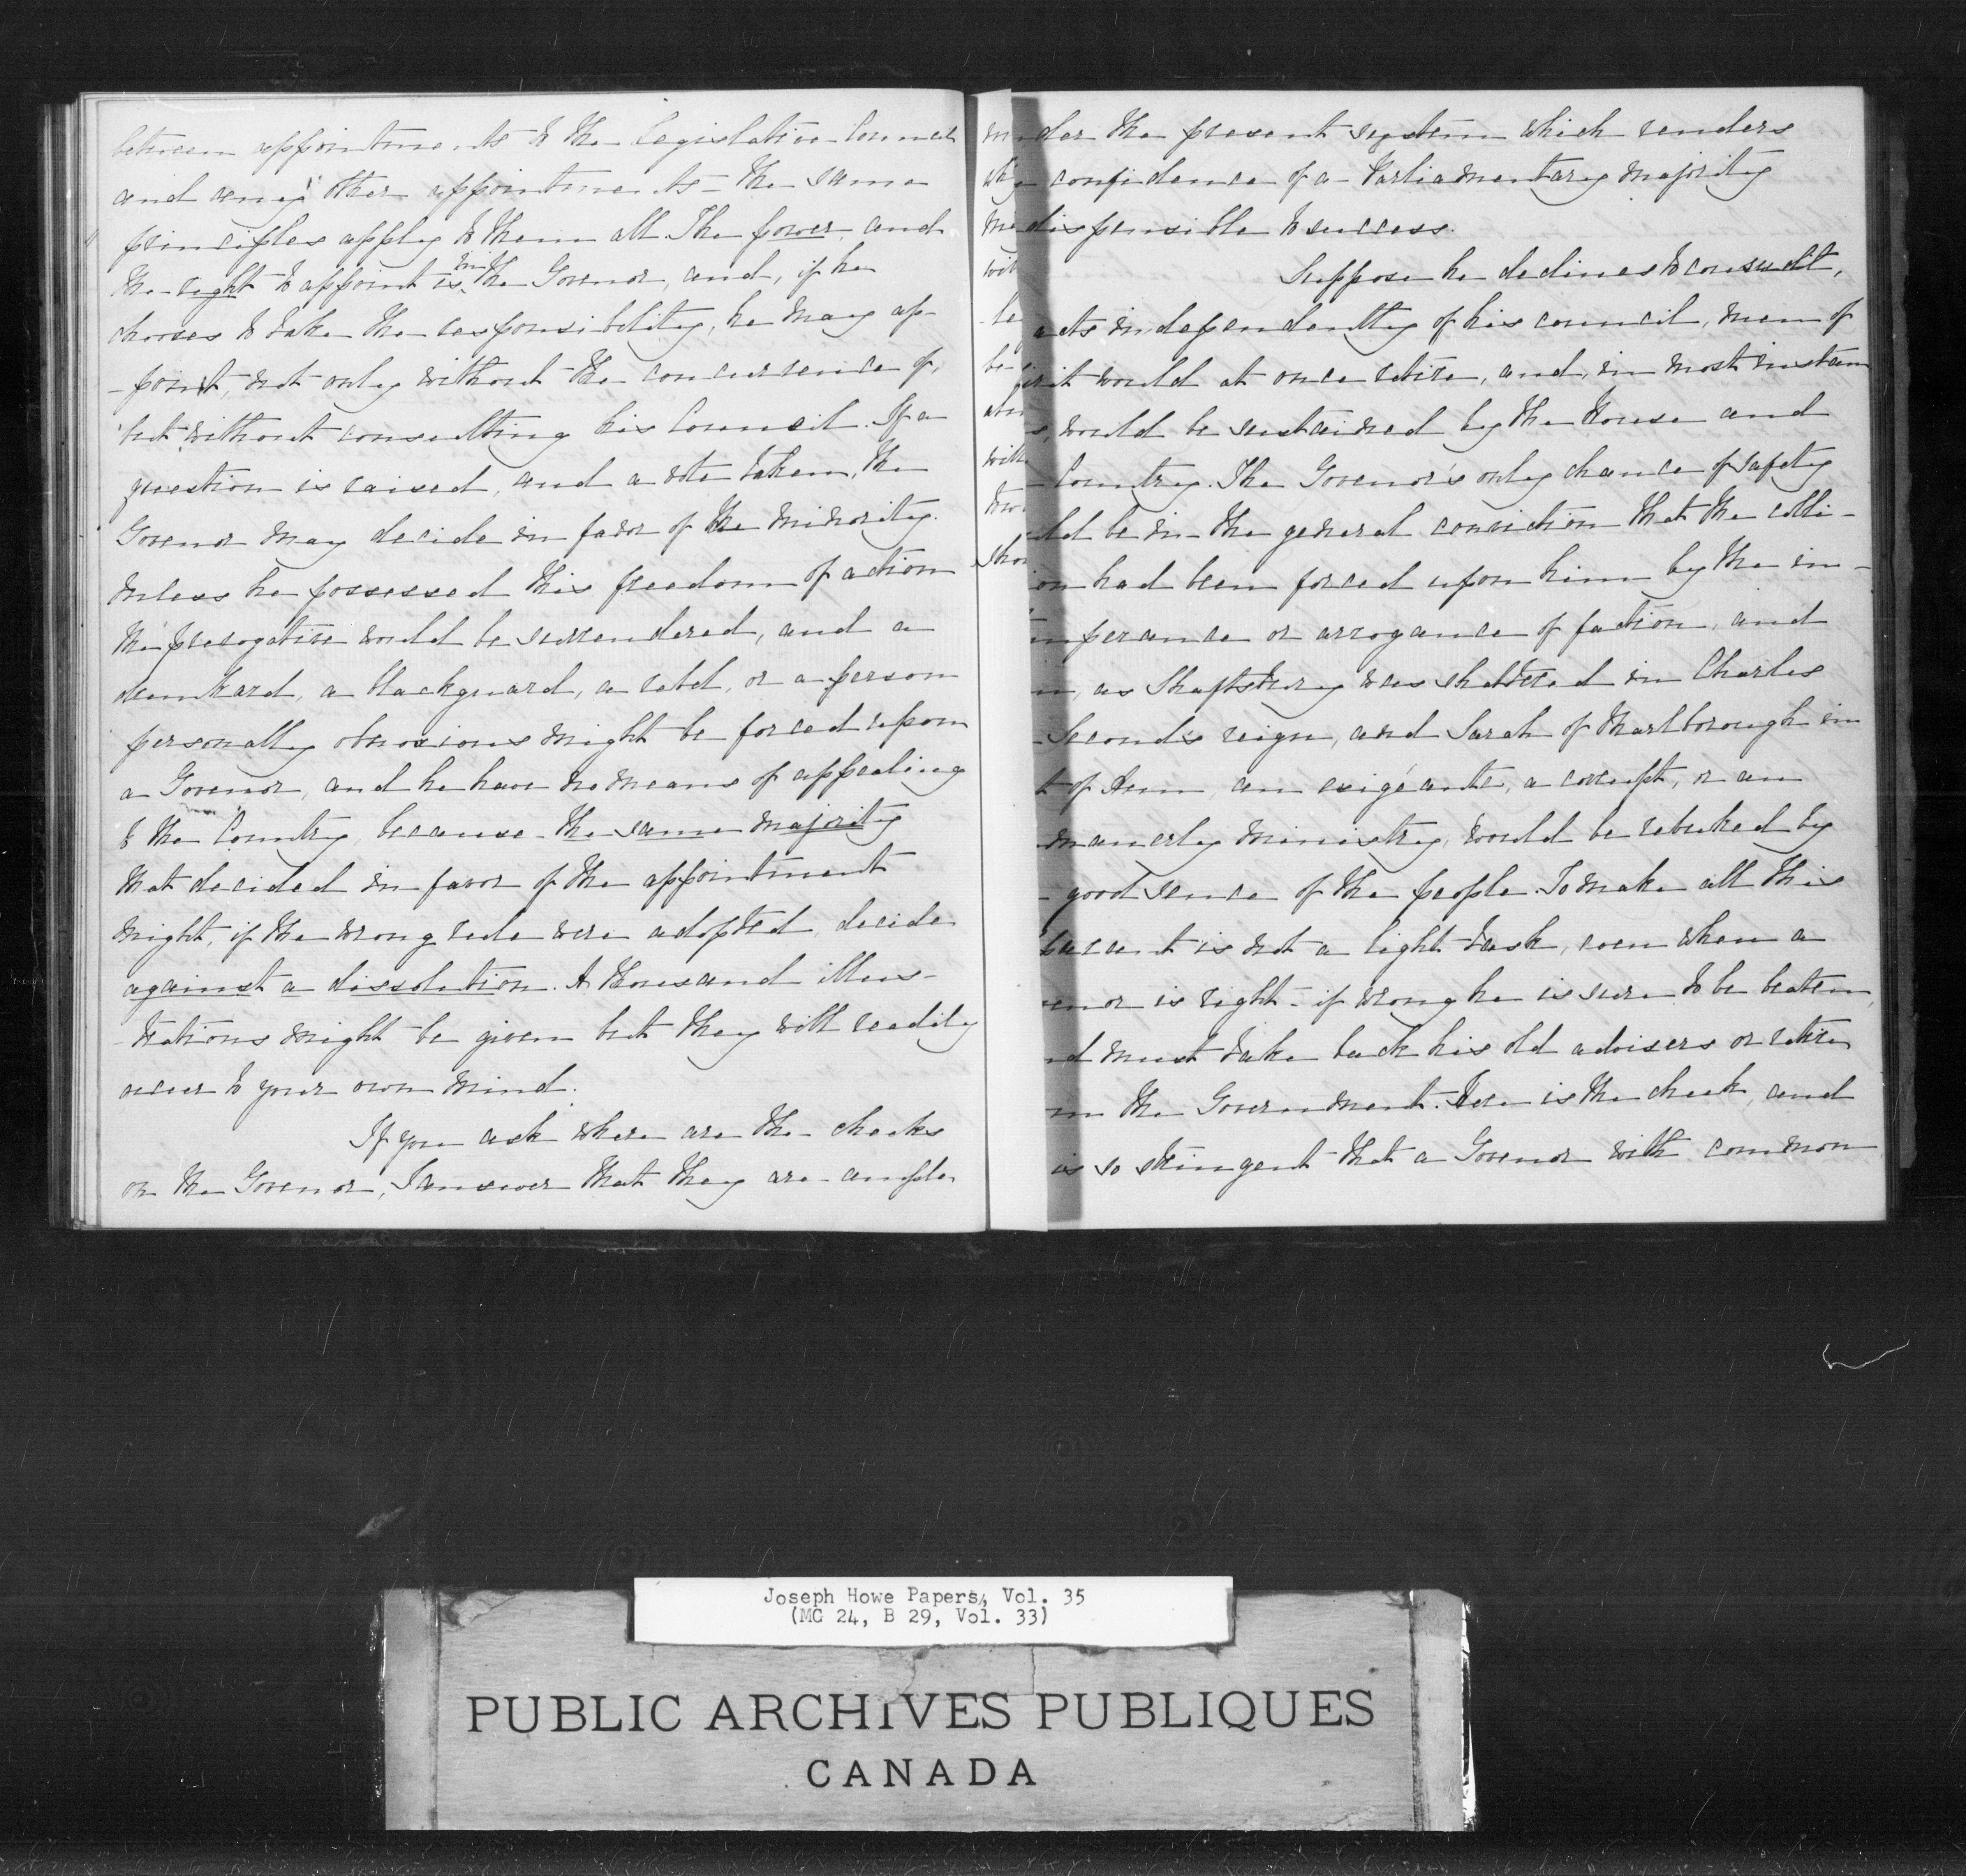 between appointments to the Legislative Council
and "any" other appointments - the same
principles apply to them all. The power, and
the right to appoint is in the Govenor, and, if he
chooses to take the responsibility, he may ap-
-point, not only without the concurrence of,
but without consulting his Council. If a
question is raised, and a vote taken, the
Govenor may decide in favor of the minority.
Unless he possessed this freedom of action
the prerogative would be surrendered, and a
drunkard, a blackguard, a rebel, or a person
personally obnoxious might be forced upon
a Govenor, and he have no means of appealing
to the Country, because the same majority
that decided in favor of the appointment
might, if the wrong rule were adopted, decide
against a dissolution. A thousand illus-
-trations might be given but they will readily
occur to your own mind.
If you ask where are the checks
on the Govenor, I answer that they are ample
under the present system which renders
confidence of a Parliamentary majority
indispensible to success.
Suppose he declines to consult,
acts independently of his council, men of
spirit would at once retire, and, in most instan
s, would be sustained by the House and
Country. The Govenor's only chance of safety
uld be in the general conviction that the colli-
ion had been forced upon him by the in-
temperance or arrogance of faction, and
as Shaftsbury was shattered in Charles
Second's reign, and Sarah of Marlborough in
t of Ann, an exigéante, a corrupt, or an
manerly ministry, would be rebuked by
good sence of the people. To make all this
parent is not a light task, even when a
enor is right - if wrong he is sure to be beaten,
nd must take back his old advisers or retire
m the Government. Here is the check, and
is so stringent that a Govenor with common
Joseph Howe Papers, Vol. 35
(MG 24, B 29, Vol. 33)
PUBLIC ARCHIVES PUBLIQUES
CANADA